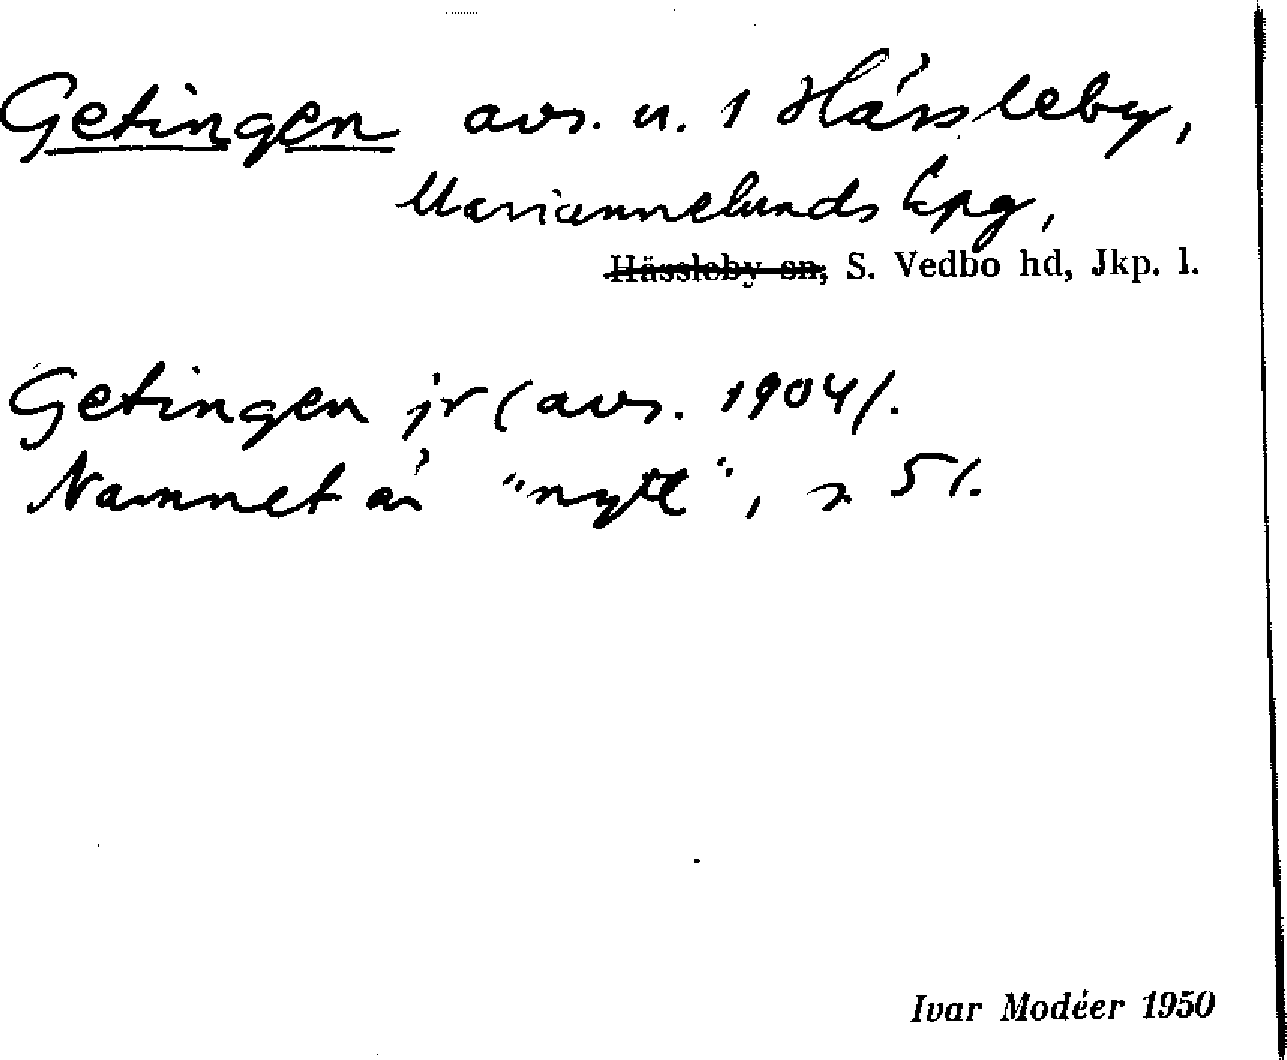 Getingen avs. u. 1 Hässleby,
Mariannelunds kpg,
Hässleby sn, S. Vedbo hd, Jkp. l.
Getingen jr (avs. 1904/.
Namnet är "nytt", s 5/.
Ivar Modéer 1950